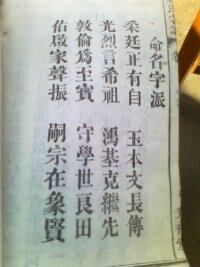 命名字派
采廷正有自　玉本文長傳
光烈言希祖　鴻基克繼先
敦倫為至寶　守學世良田
佑啟家聲振　嗣宗在象賢